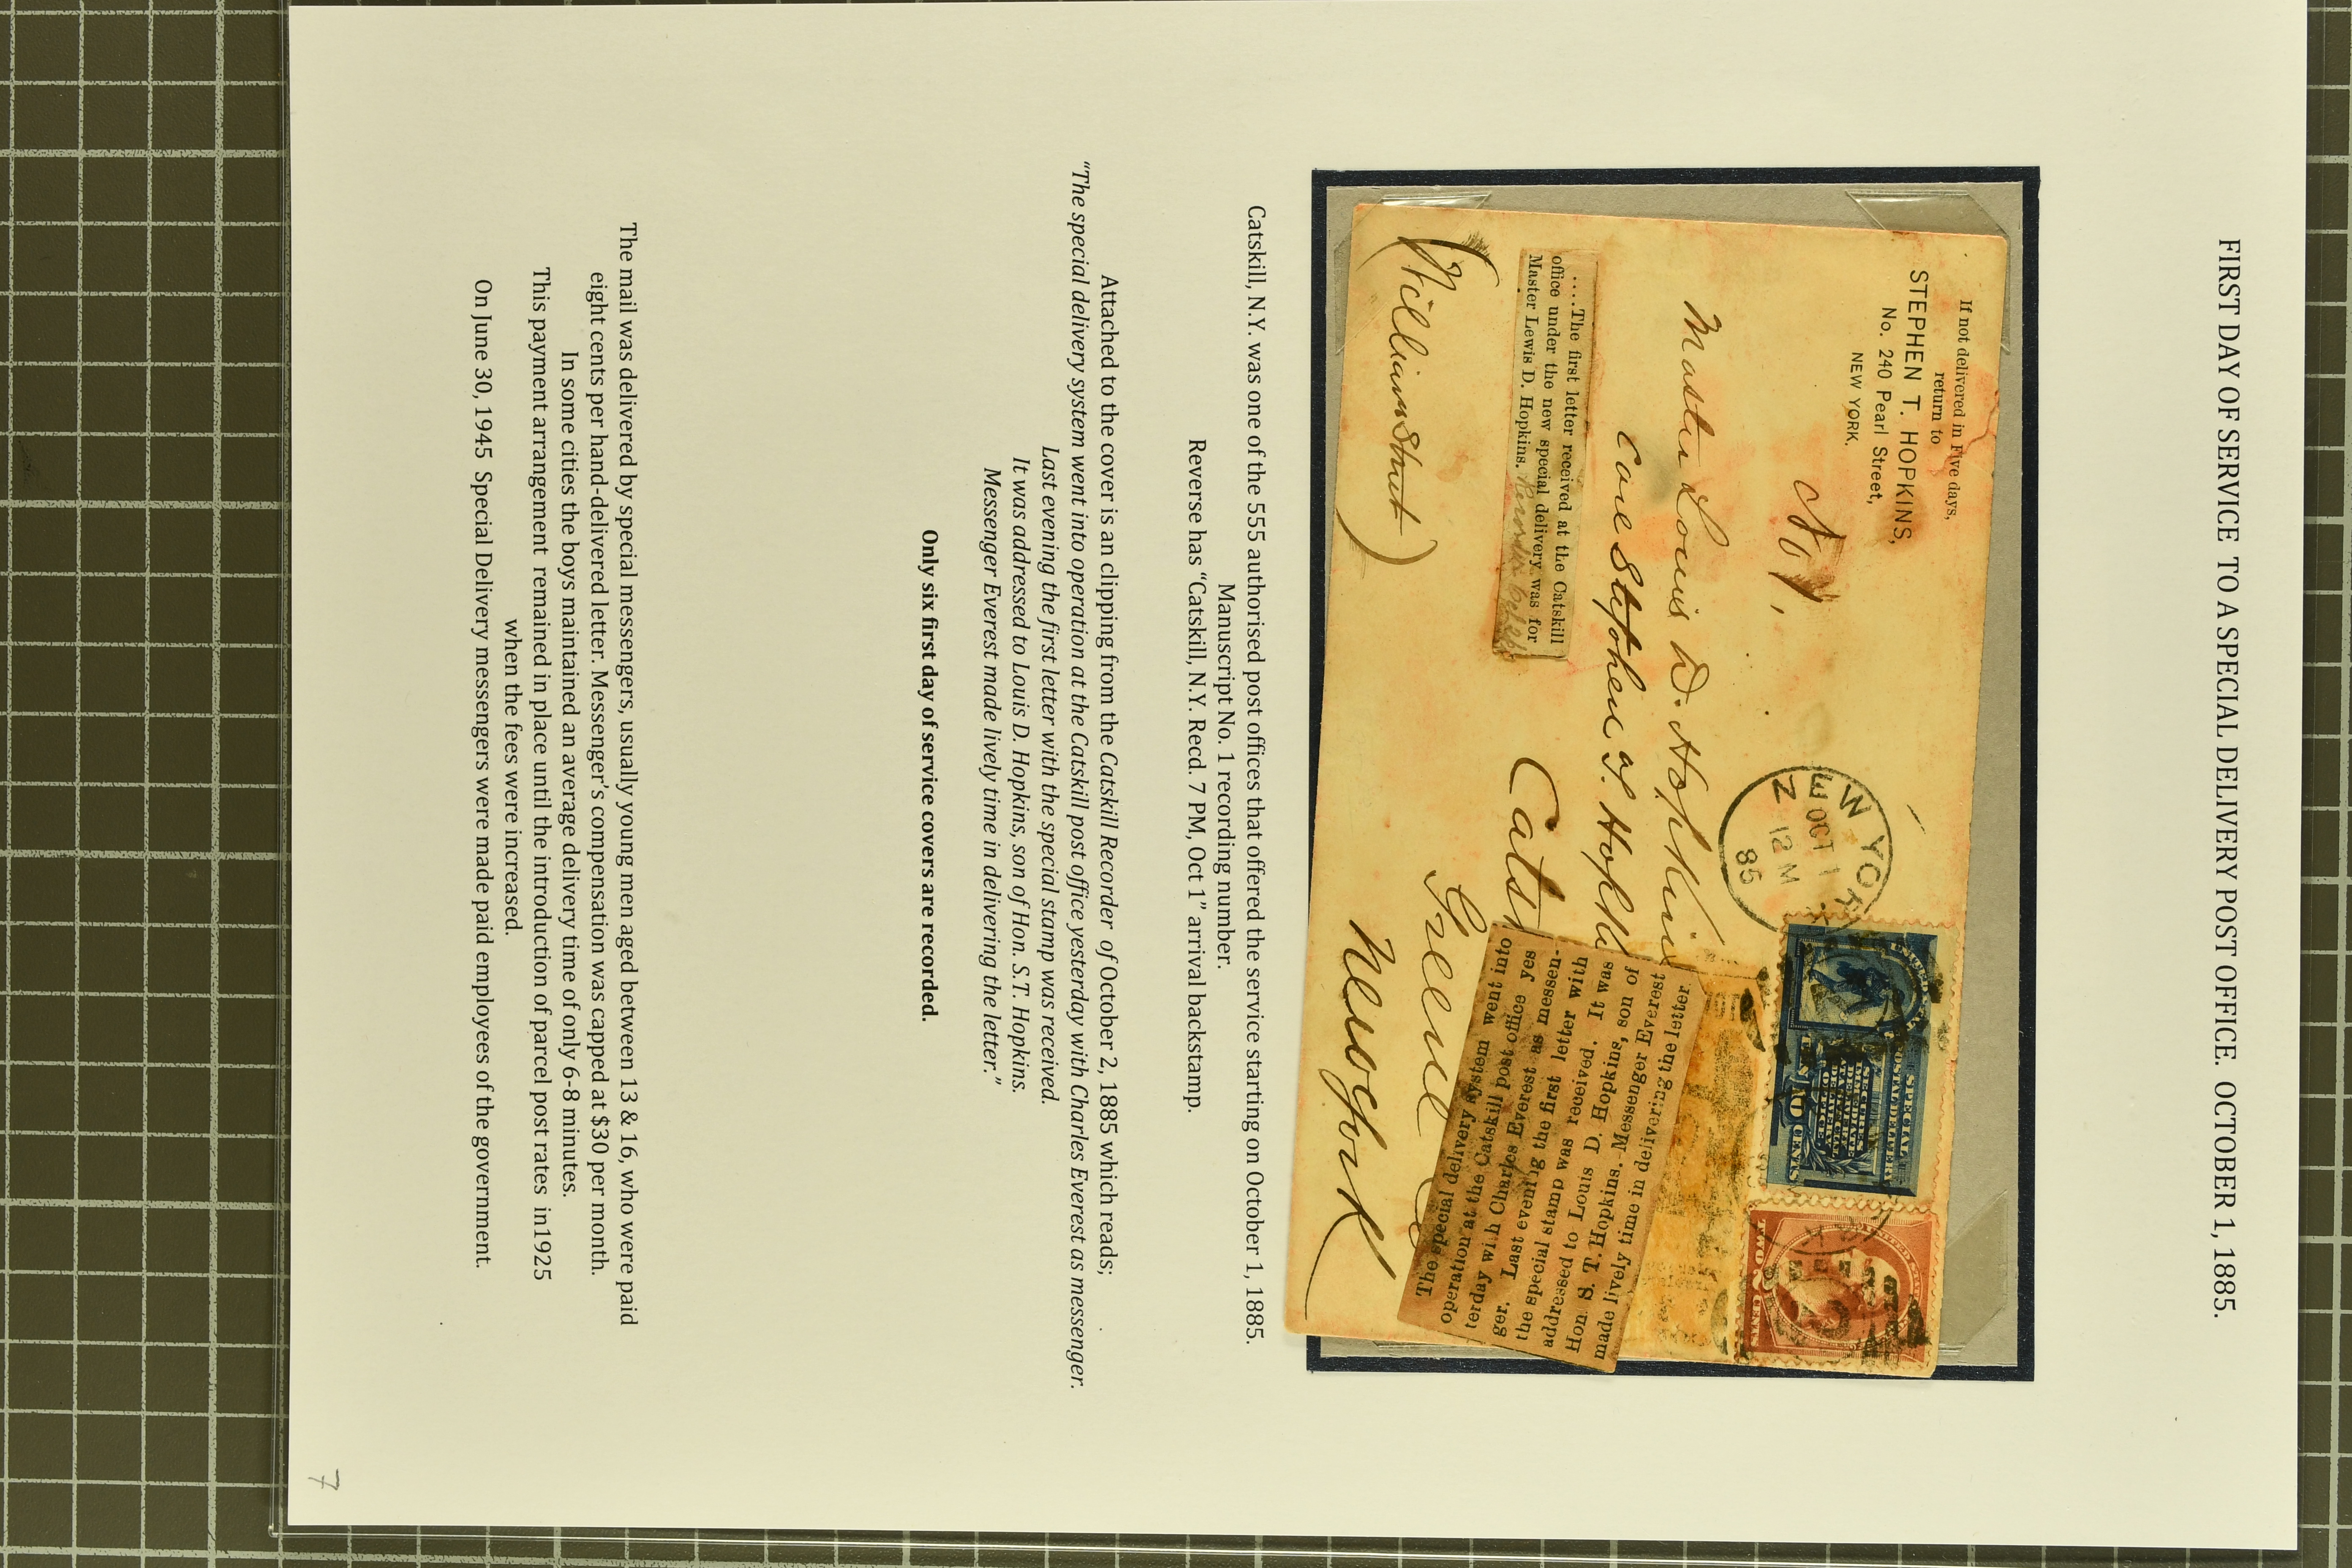 FIRST DAY OF SERVICE TO A SPECIAL DELIVERY POST OFFICE. OCTOBER 1, 1885.
If not delivered in Five days,
return to
STEPHEN T. HOPKINS,
No. 240 Pearl Street,
NEW YORK.
No 1,
NEW YORK
OCT 1
12 M
85
SPECIAL
POSTAL DELIVERY
SECURES
IMMEDIATE
DELIVERY
AT A SPECIAL
DELIVERY
OFFICE.
TEN CENTS
TWO 2 CENTS
Master Louis D. Hopkins
Care Stephen T. Hopkins
Cats
Greene
New York
(William Street)
....The first letter received at the Catskill
office under the new special delivery was for
Master Lewis D. Hopkins.
The special delivery system went into
operation at the Catskill post office yes
terday wi h Charles Everest as messen-
ger. Last evening the first letter with
the special stamp was received. It was
addressed to Louis D. Hopkins, son of
Hon S. T. Hopkins. Messenger Everest
made lively time in delivering the letter.
Catskill, N.Y. was one of the 555 authorised post offices that offered the service starting on October 1, 1885.
Manuscript No. 1 recording number.
Reverse has “Catskill, N.Y. Recd. 7 PM, Oct 1” arrival backstamp.
Attached to the cover is an clipping from the Catskill Recorder of October 2, 1885 which reads;
“The special delivery system went into operation at the Catskill post office yesterday with Charles Everest as messenger.
Last evening the first letter with the special stamp was received.
It was addressed to Louis D. Hopkins, son of Hon. S.T. Hopkins.
Messenger Everest made lively time in delivering the letter.”
Only six first day of service covers are recorded.
The mail was delivered by special messengers, usually young men aged between 13 & 16, who were paid
eight cents per hand-delivered letter. Messenger's compensation was capped at $30 per month.
In some cities the boys maintained an average delivery time of only 6-8 minutes.
This payment arrangement remained in place until the introduction of parcel post rates in1925
when the fees were increased.
On June 30, 1945 Special Delivery messengers were made paid employees of the government.
7